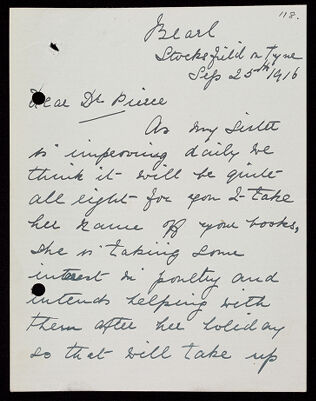 118.
Bearl
Stocksfield on Tyne
Sep 25th 1916
Dear Dr Pierce
As my sister
is improving daily we
think it will be quite
all right for you to take
her name off your books,
she is taking some
interest in poultry and
intends helping with
them after her holiday
so that will take up